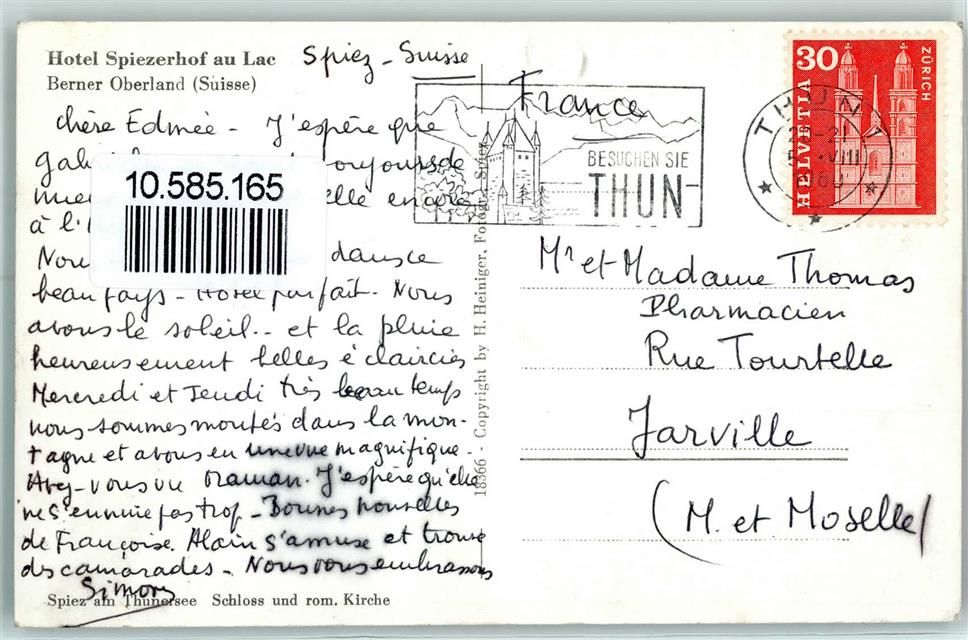 Hotel Spiezerhof au Lac
Berner Oberland (Suisse)
Spiez - Suisse
France
chère Edmée - J'espère que
toujours de
elle encore
à l'
10.585.165
Nous dans ce
beau pays - Hotel parfait. Nous
avons le soleil.. et la pluie
heureusement belles éclaircies
Mercredi et Jeudi très beau temps
nous sommes montés dans la mon-
tagne et avons eu une vue magnifique.
Avez-vous vu Maman. J'espère qu'elle
ne s'ennuie pas trop - Bonnes nouvelles
de Françoise. Alain s'amuse et trouve
des camarades - Nous vous embrassons
Simone
Spiez am Thunersee Schloss und rom. Kirche
18366 - Copyright by H. Heiniger, Fotogr., Spiez
BESUCHEN SIE
THUN
THUN 1
VIII
30
HELVETIA
ZÜRICH
Mr et Madame Thomas
Pharmacien
Rue Tourtelle
Jarville
(M. et Moselle)